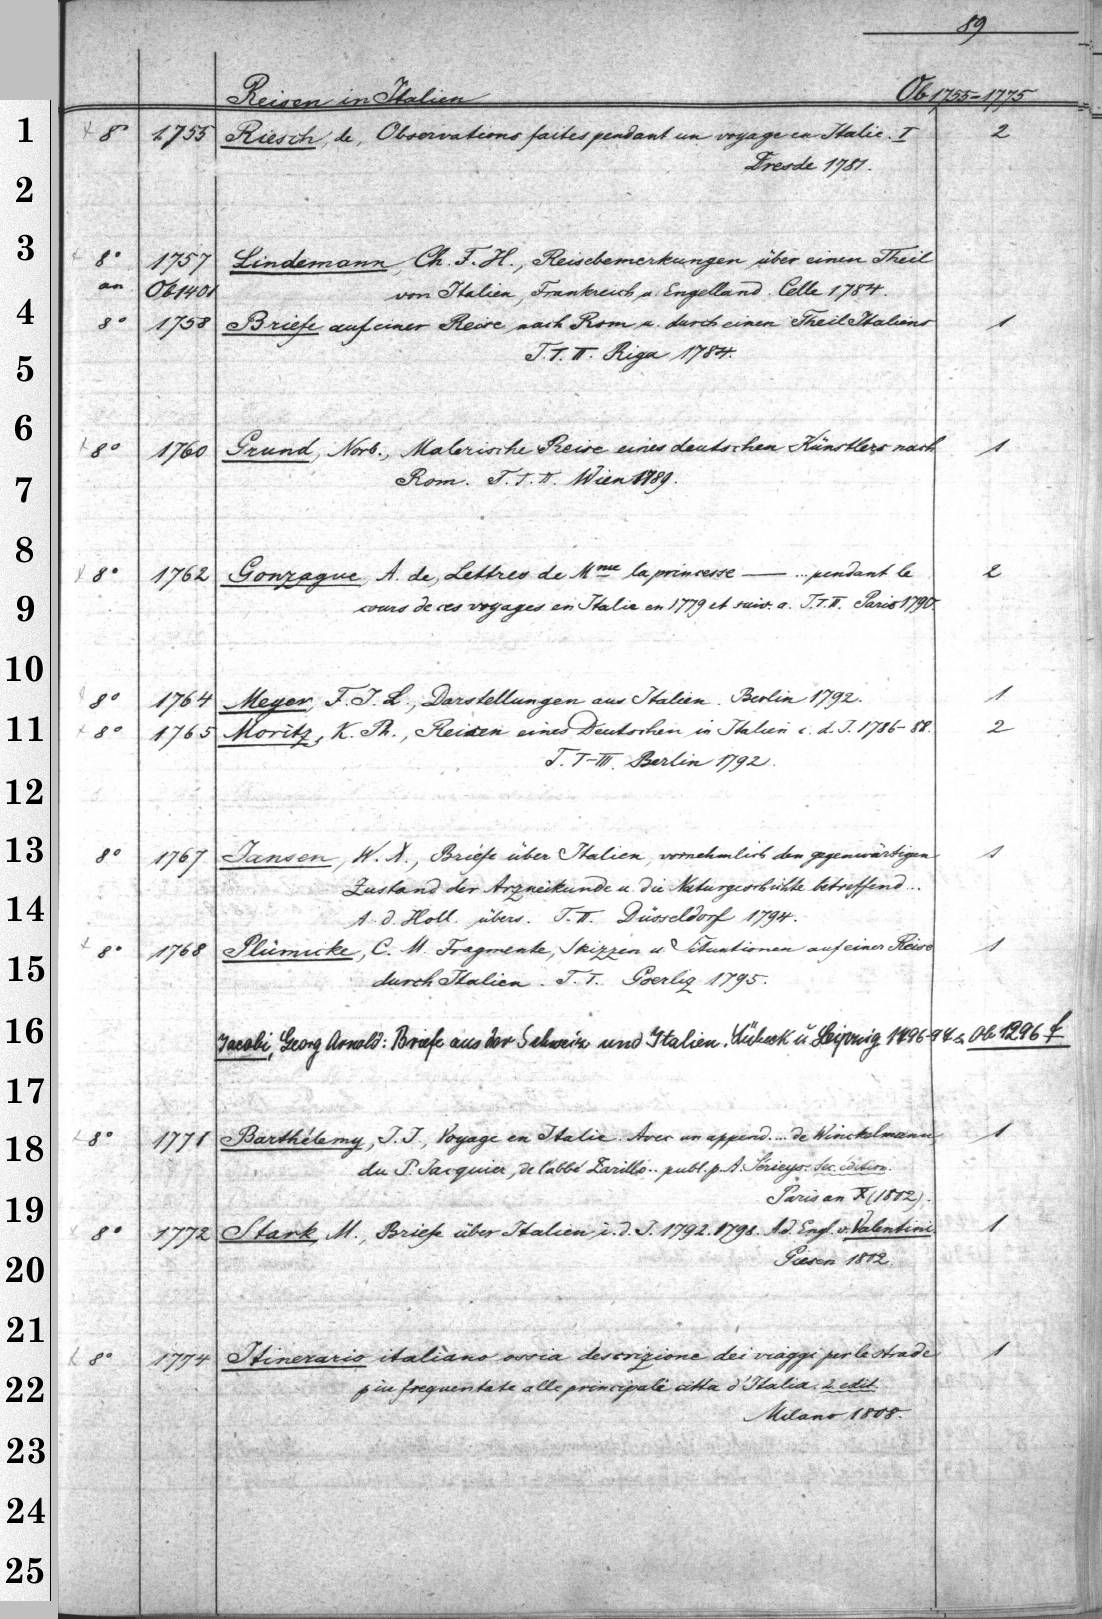 89
Reisen in Italien Ob 1755-1775
1 × 8° 1755 Riesch, de, Observations faites pendant un voyage en Italie. I 2
2 Dresde 1781.
3 × 8° 1757 Lindemann, Ch. F. H., Reisebemerkungen über einen Theil
an Ob 1401 von Italien, Frankreich u. Engelland. Celle 1784.
4 8° 1758 Briefe auf einer Reise nach Rom u. durch einen Theil Italiens 1
5 T. I. II. Riga 1784.
6 × 8° 1760 Grund, Norb., Malerische Reise eines deutschen Künstlers nach 1
7 Rom. T. I. II. Wien 1789.
8 × 8° 1762 Gonzague, A. de, Lettres de Mme la princesse — ... pendant le 2
9 cours de ces voyages en Italie en 1779 et suiv. a. T. I. II. Paris 1790.
10 × 8° 1764 Meyer, F. J. L., Darstellungen aus Italien. Berlin 1792. 1
11 × 8° 1765 Moritz, K. Ph., Reisen eines Deutschen in Italien i. d. J. 1786-88. 2
T. I-III. Berlin 1792.
12
13 8° 1767 Jansen, W. X., Briefe über Italien, vornehmlich den gegenwärtigen 1
Zustand der Arzneikunde u. die Naturgeschichte betreffend...
14 A. d. Holl. übers. T. II. Düsseldorf 1794.
15 × 8° 1768 Plümicke, C. M. Fragmente, Skizzen u. Situationen auf einer Reise 1
durch Italien. T. I. Goerliz 1795.
16 Jacobi, Georg Arnold: Briefe aus der Schweiz und Italien. Lübeck u Leipzig 1796-97 s. Ob 1296 f
17
18 × 8° 1771 Barthélemy, J. J., Voyage en Italie. Avec un append.... de Winckelmann 1
du P. Jacquier, de l'abbé Zarillo.. publ. p. A. Sérieys. Sec. édition.
19 Paris an X (1802).
× 8° 1772 Stark, M., Briefe über Italien i. d. J. 1792. 1798. A d. Engl. v. Valentini. 1
20 Giesen 1802.
21
× 8° 1774 Itinerario italiano ossia descrizione dei viaggi per le strade 1
22 piu frequentate alle principali citta d'Italia. 2 edit.
Milano 1808.
23
24
25